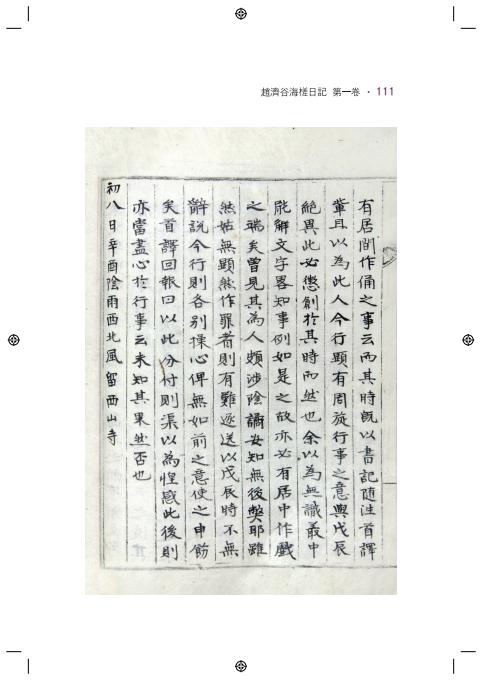 趙濟谷海槎日記 第一卷 · 111
有居間作俑之事云而其時旣以書記隨往首譯
輩且以為此人今行顯有周旋行事之意與戊辰
絕異此必懲創於其時而然也余以為無識叢中
能解文字畧知事例如是之故亦必有居中作戲
之端矣曾見其為人頗涉陰譎安知無後弊耶雖
然姑無顯然作罪者則有難逐送以戊辰時不無
辭說今行則各別操心俾無如前之意使之申飭
矣首譯回報曰以此分付則渠以為惶感此後則
亦當盡心於行事云未知其果然否也
初八日辛酉陰雨西北風留西山寺